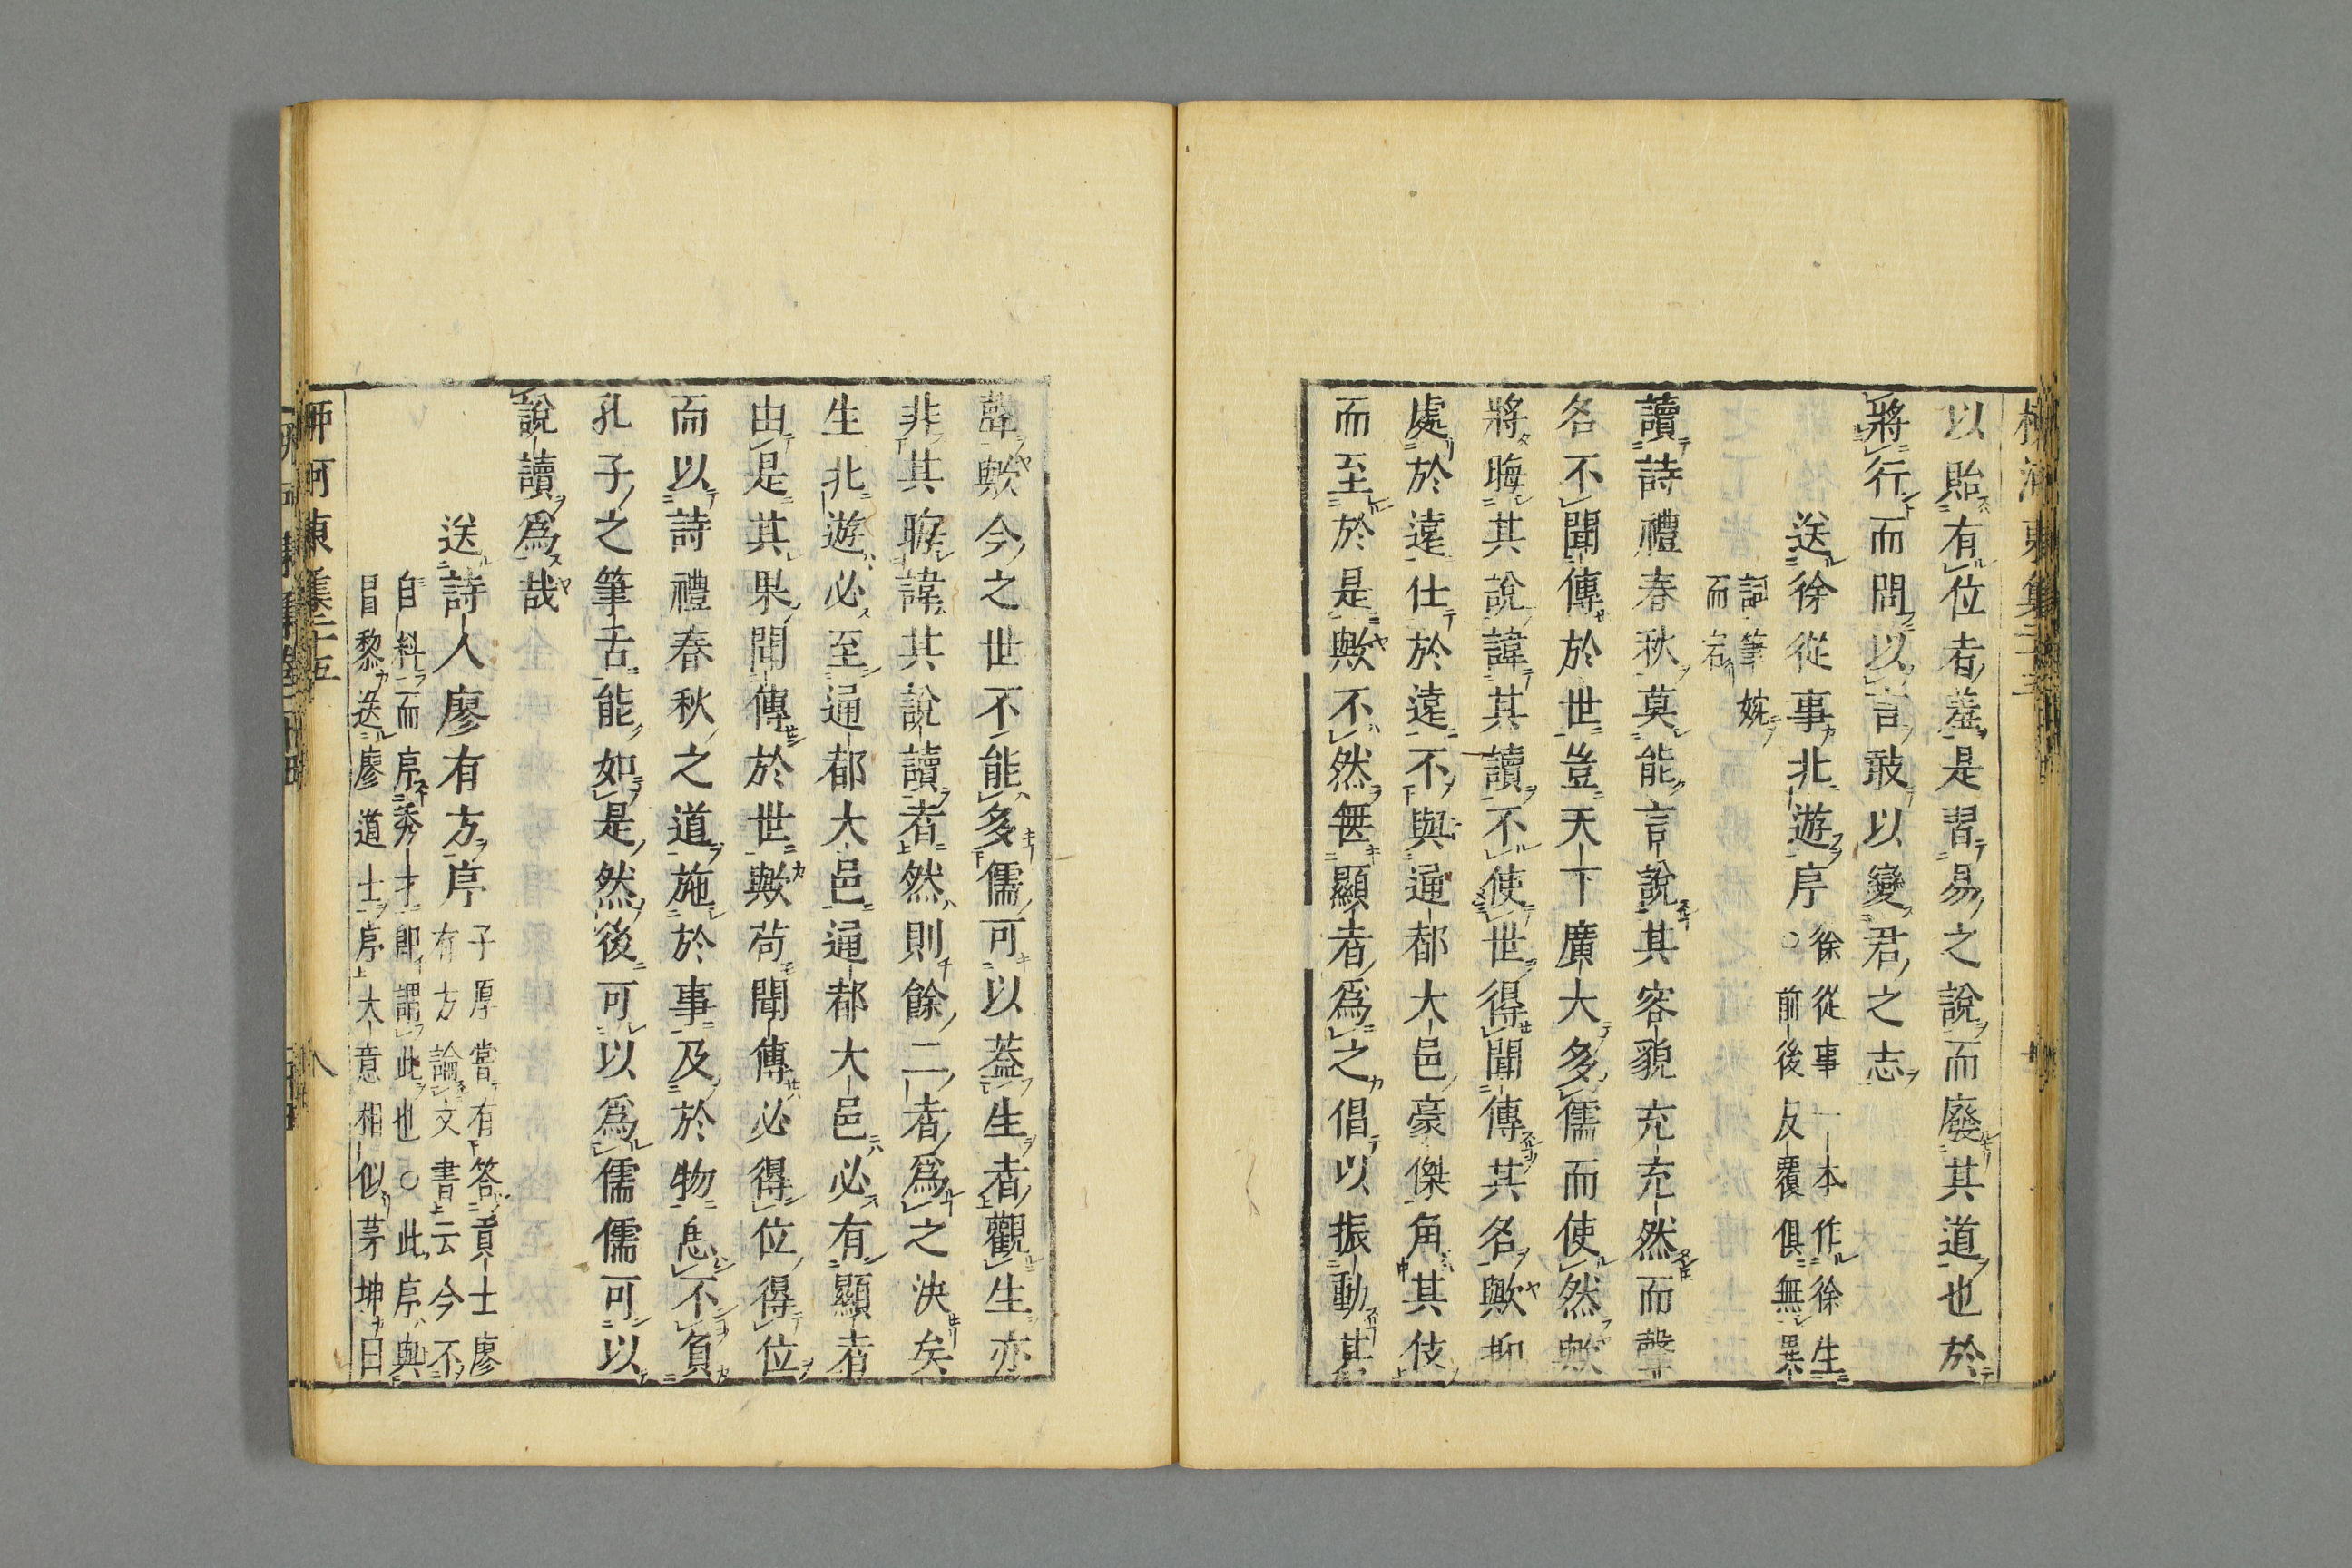 以貽有位者羞是習易之說而廢其道也於
將行而問以言敢以變君之志
送徐從事北遊序
徐從事一本作徐生
○前後反覆俱無異
詞筆婉
而宕
讀詩禮春秋莫能言說其容貌充充然而聲
名不聞傳於世豈天下廣大多儒而使然歟
將晦其說諱其讀不使世得聞傳其名歟抑
處於遠仕於遠不與通都大邑豪傑角其伎
而至於是歟不然無顯者為之倡以振動其
聲歟今之世不能多儒可以蓋生者觀生亦
非其晦諱其說讀者然則餘二者為之決矣
生北遊必至通都大邑通都大邑必有顯者
由是其果聞傳於世歟苟聞傳必得位得位
而以詩禮春秋之道施於事及於物思不負
孔子之筆舌能如是然後可以為儒儒可以
說讀為哉
送詩人廖有方序
子厚嘗有答貢士廖
有方論文書云今不
自料而序秀才即謂此也○此序與
昌黎送廖道士序大意相似茅坤曰
河東集二十五
八